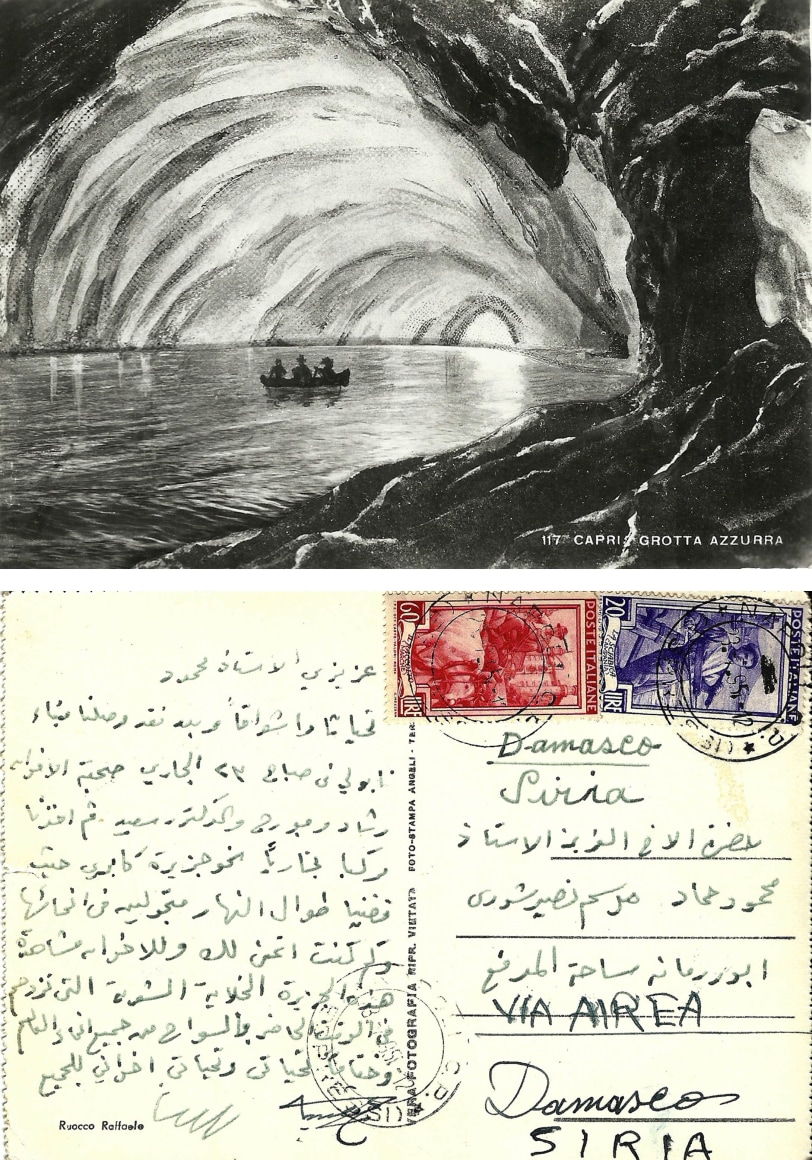 117 CAPRI - GROTTA AZZURRA
عزيزي الاستاذ محمود
تحياتنا واشواقنا وبعد فقد وصلنا ميناء
نابولي في صباح ٢٣ الجاري صحبة الاخوان
رشاد وممدوح والدكتور سعيد ثم اخذنا
مركبا بخاريا نحو جزيرة كابري حيث
قضينا طوال النهار متجولين في انحائها
وكم كنت اتمنى لك وللاخوان مشاهدة
هذه الجزيرة الخلابة التي تزدحم
في الوقت الحاضر بالسواح من جميع انحاء العالم
وختاما تحياتي وتحياتي اخواني للجميع
Ruocco Raffaele
VERA FOTOGRAFIA RIPR. VIETATA FOTO-STAMPA ANGELI - TER
60 LIRE POSTE ITALIANE
20 LIRE POSTE ITALIANE
Damasco
Siria
حضرة الاخ العزيز الاستاذ
محمود حماد
ابو رمانة ساحة المدفع
VIA AIREA
Damasco
SIRIA